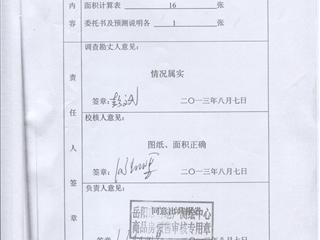 内 面积计算表 16 张
容 委托书及预测说明各 1 张
调查勘丈人意见：
情况属实
签章： 二〇一三年八月七日
校核人意见：
图纸、面积正确
签章： 二〇一三年八月七日
负责人意见：
同意出
商品房预售审核专用章
签章： 二〇一三年八月七日
责任人签章